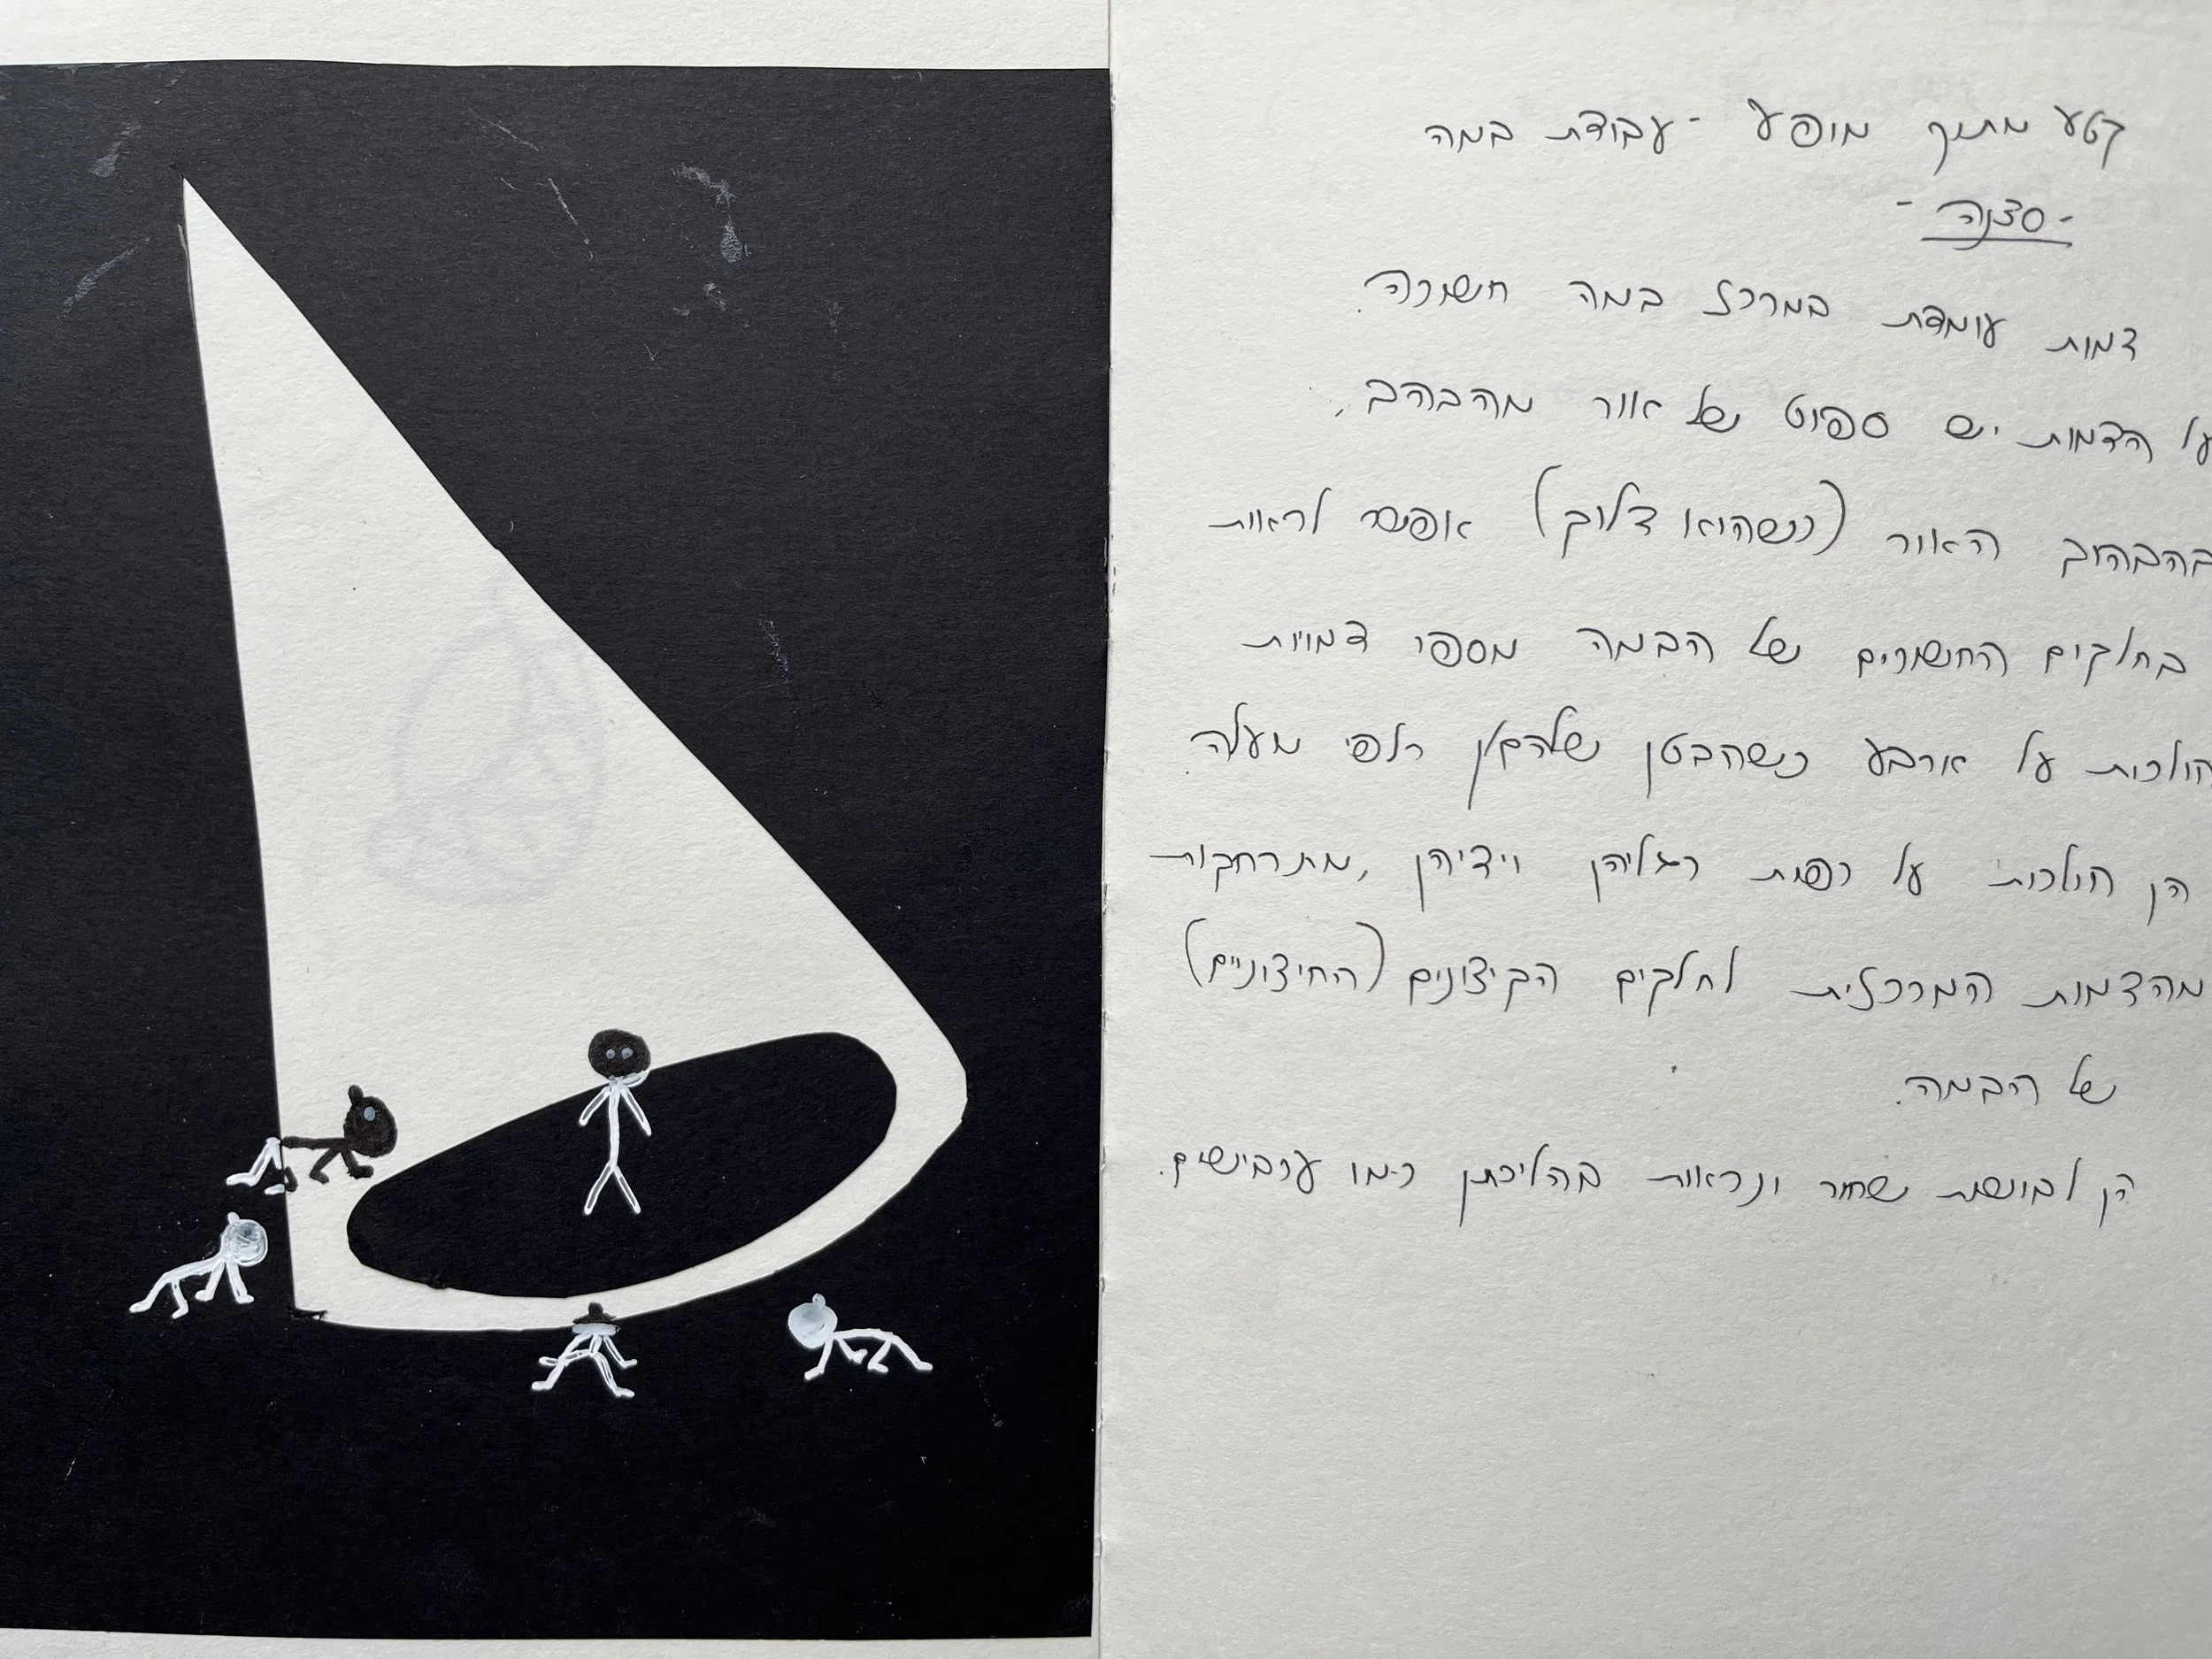 קטע מתוך מופע - עבודת במה
- סצנה -
דמות עומדת במרכז במה חשוכה.
על הדמות יש ספוט של אור מהבהב,
בהבהוב האור (כשהוא דלוק) אפשר לראות
בחלקים החשוכים של הבמה מספר דמויות
הולכות על ארבע כשהבטן שלהם/ן כלפי מעלה
הן הולכות על כפות רגליהן וידיהן, מתרחקות
מהדמות המרכזית לחלקים הקיצונים (החיצוניים)
של הבמה.
הן לבושות שחור ונראות בהליכתן כמו עכבישים.